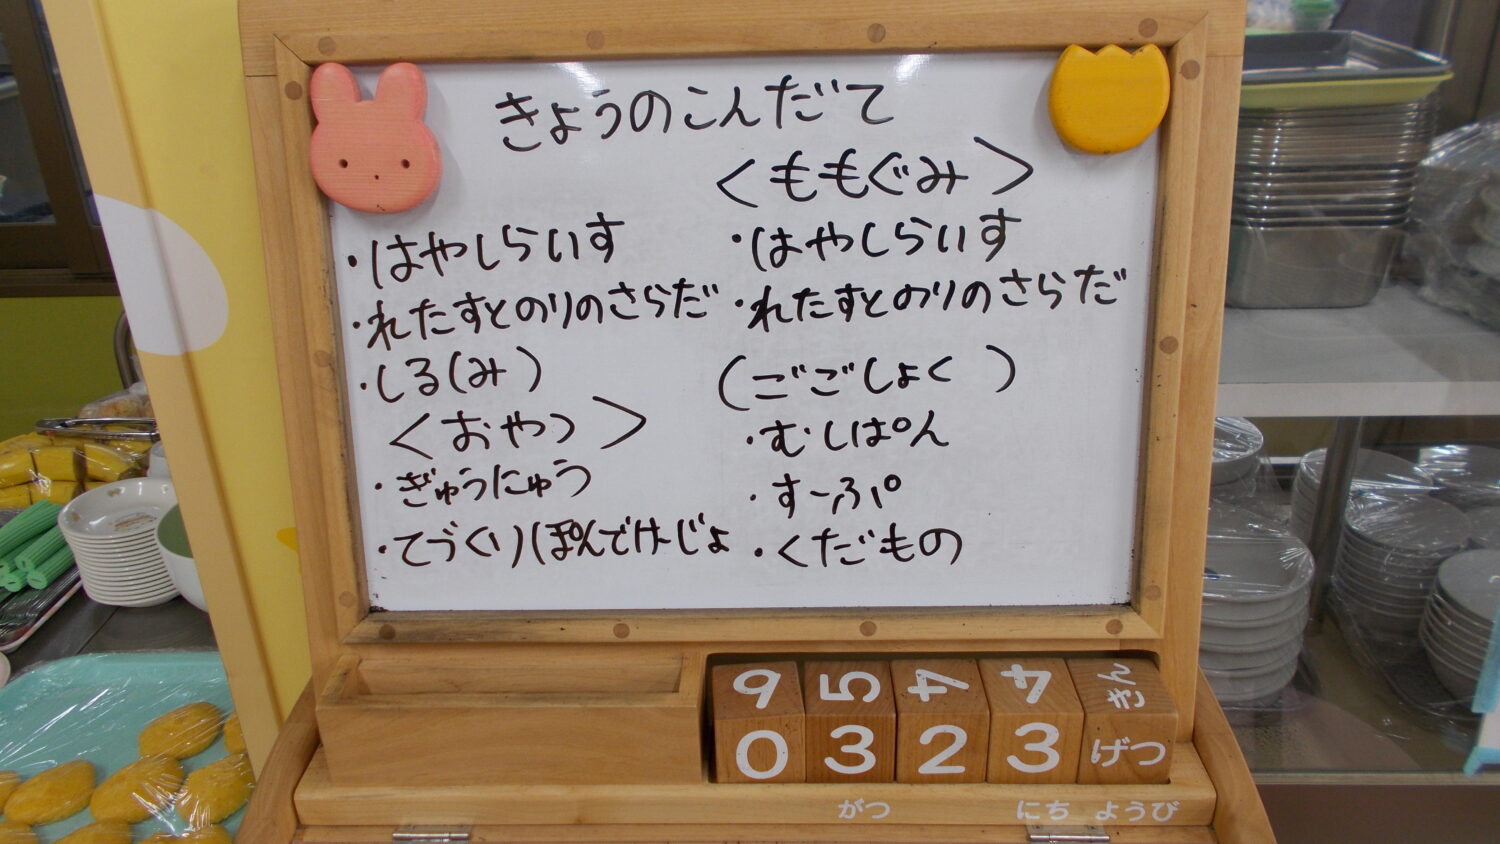 きょうのこんだて
・はやしらいす
・れたすとのりのさらだ
・しる(み)
<おやつ>
・ぎゅうにゅう
・てづくりぽんでけーじょ
<ももぐみ>
・はやしらいす
・れたすとのりのさらだ
(ごごしょく)
・むしぱん
・すーぷ
・くだもの
9 5 4 4 きん
0 3 2 3 げつ
がつ にち ようび